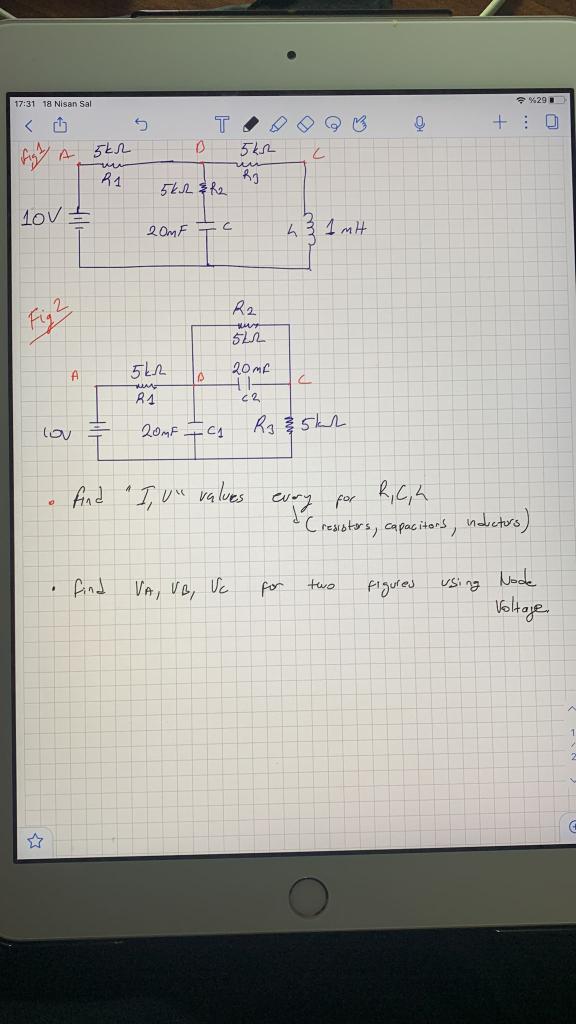 17:31 18 Nisan Sal
%29
T
Fig1
A 5kΩ B 5kΩ C
R1 R3
5kΩ R2
10V 20mF C L 1mH
Fig2
R2
5kΩ
A 5kΩ B 20mF C
R1 C2
10V 20mF C1 R3 5kΩ
• find "I, V" values every for R, C, L
(resistors, capacitors, inductors)
• find VA, VB, VC for two figures using Node
Voltage.
1
/
2